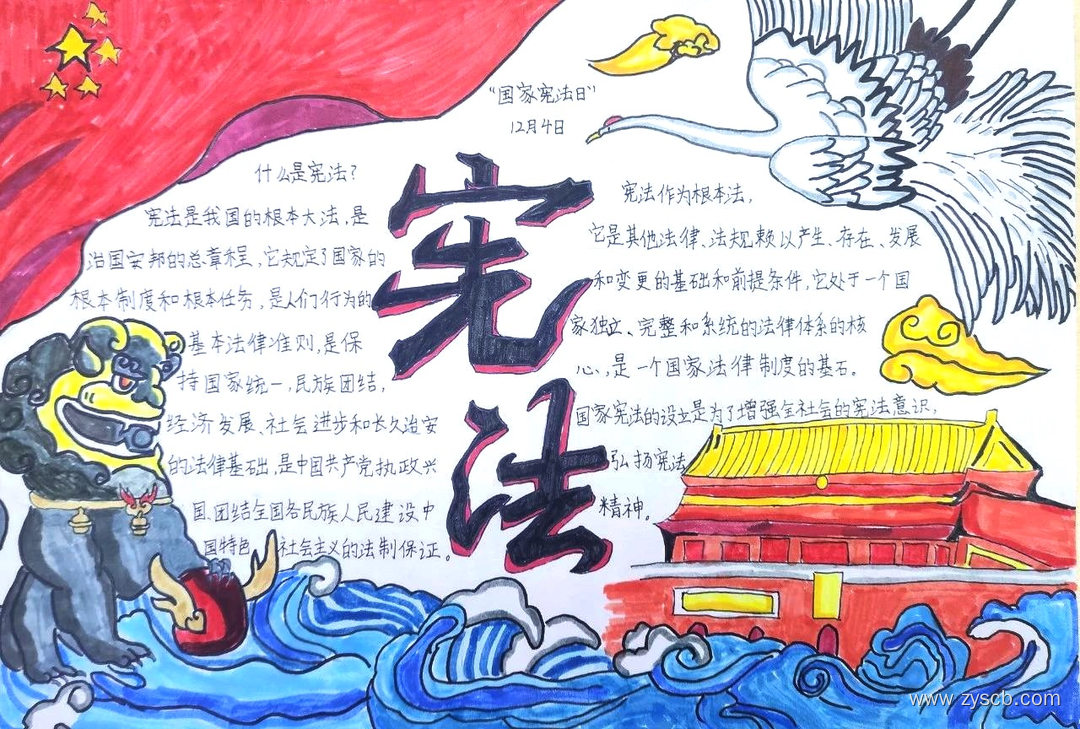 “国家宪法日”
12月4日
什么是宪法?
宪法是我国的根本大法,是
治国安邦的总章程,它规定了国家的
根本制度和根本任务,是人们行为的
基本法律准则,是保
持国家统一,民族团结,
经济发展、社会进步和长久治安
的法律基础,是中国共产党执政兴
国、团结全国各民族人民建设中
国特色 社会主义的法制保证。
宪法
宪法作为根本法,
它是其他法律、法规赖以产生、存在、发展
和变更的基础和前提条件,它处于一个国
家独立、完整和系统的法律体系的核
心,是一个国家法律制度的基石。
国家宪法的设立是为了增强全社会的宪法意识,
弘扬宪法
精神。
www.zyscb.com